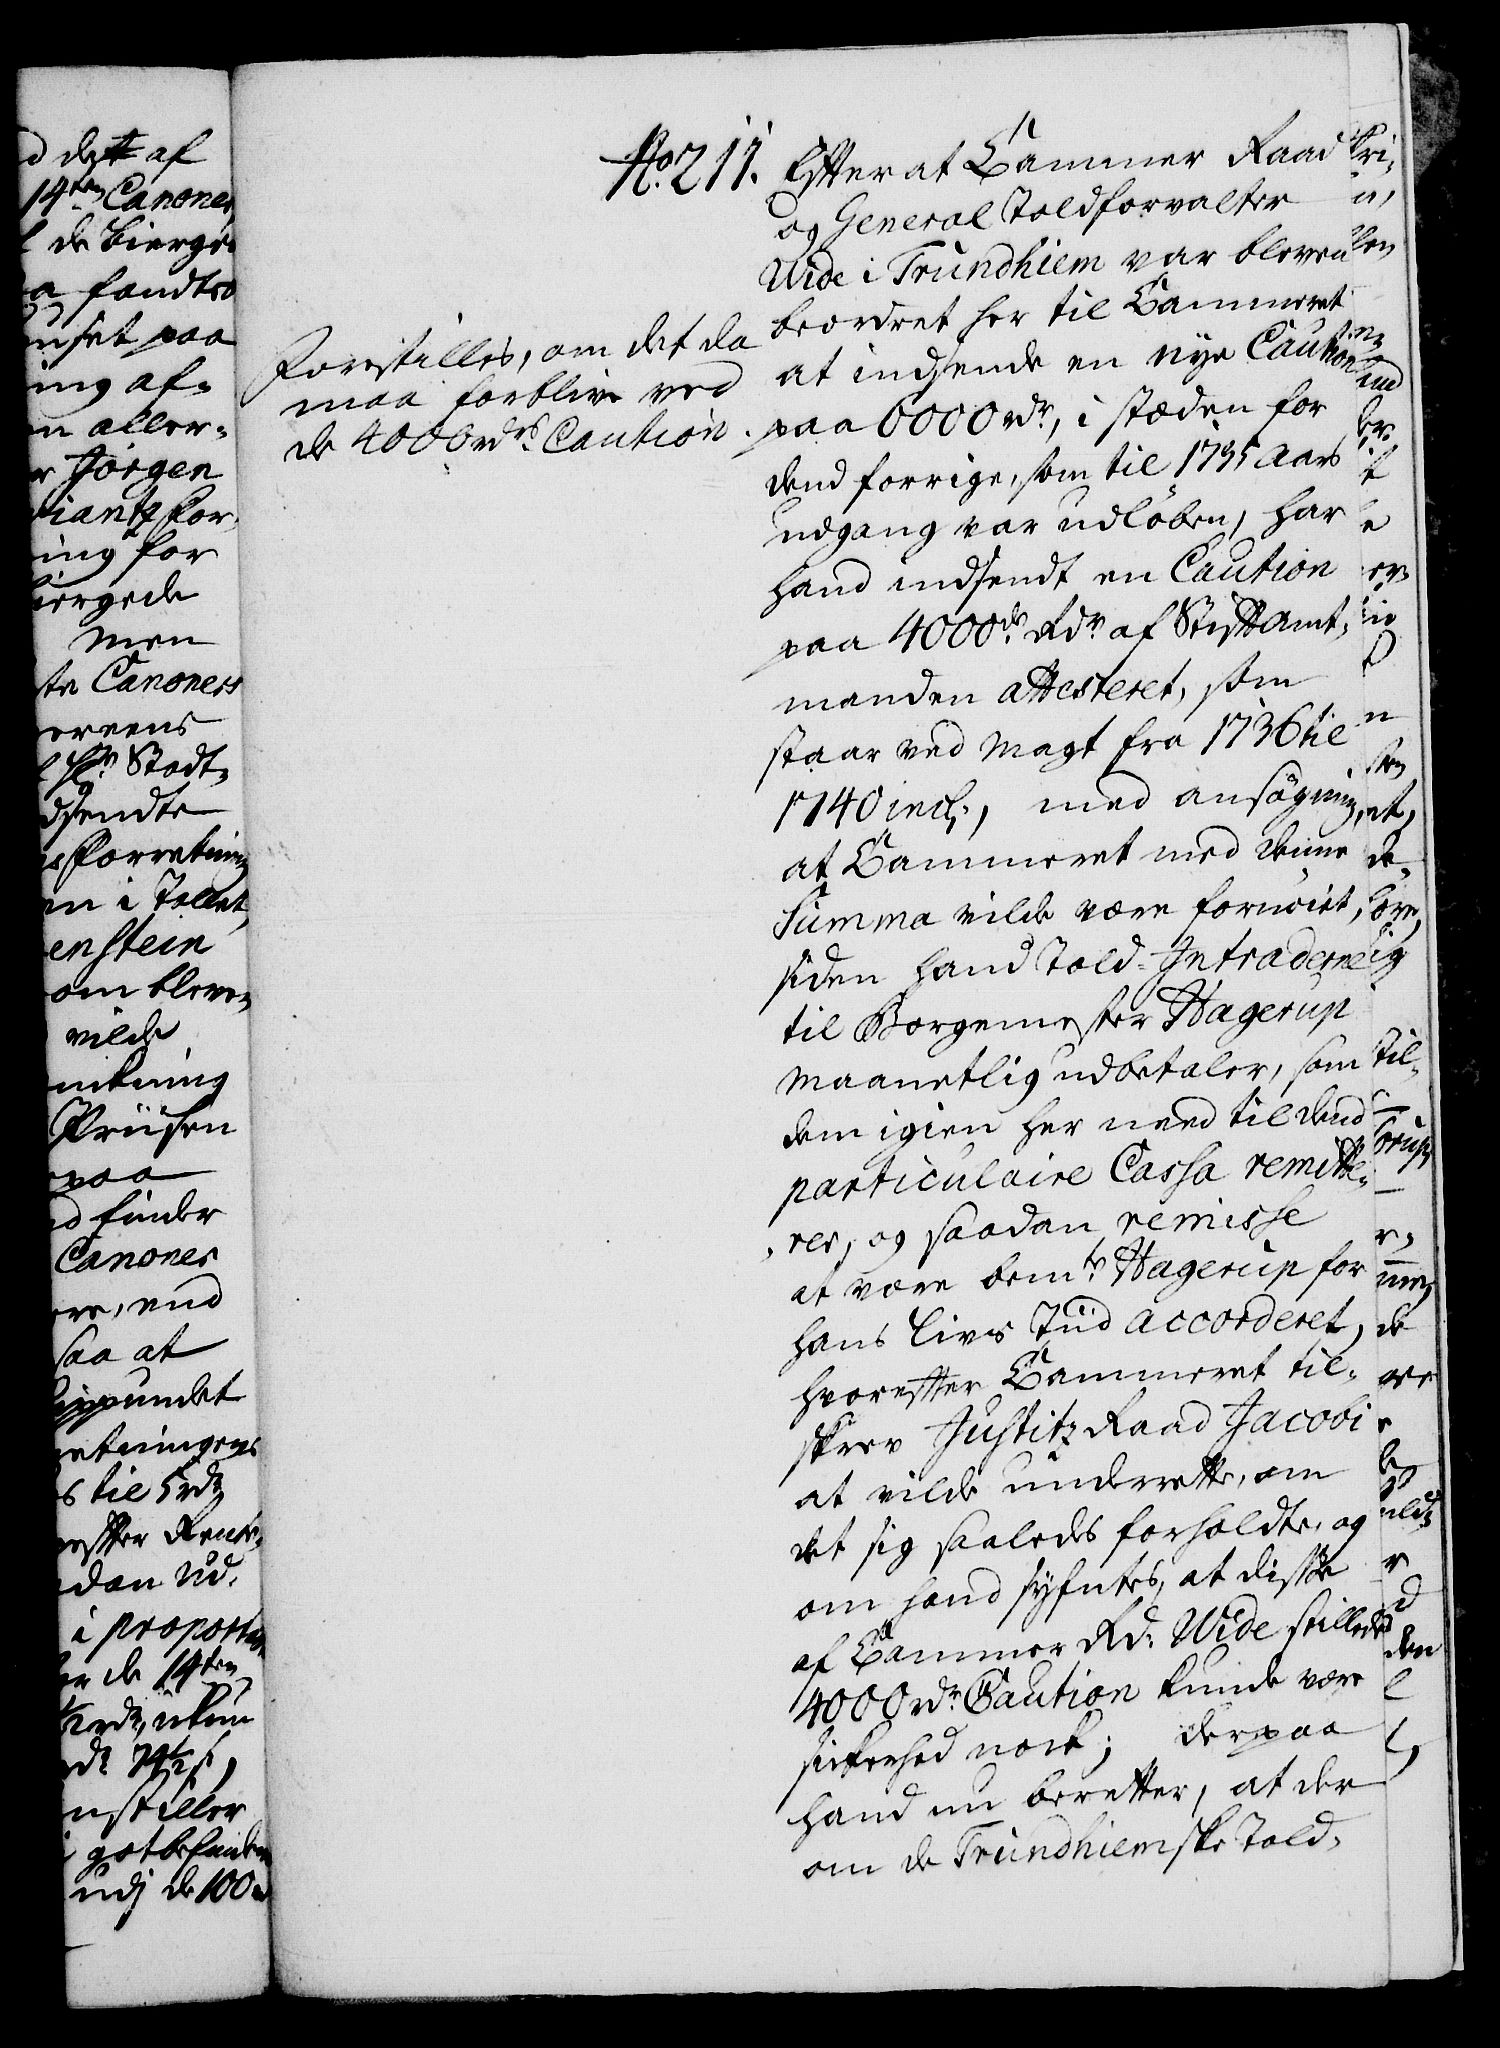 No. 211.
Efter at Cammer Raad
og General Toldforvalter
Wide i Trundhiem var bleven
beordret her til Cammeret
at indsende en nye Caution
paa 6000 rdr, i stæden for
dend forrige, som til 1735 Aars
udgang var udløben, har
hand indsendt en Caution
paa 4000de Rdr af Stiftamt-
manden attesteret, som
staar ved Magt fra 1736 til
1740 incl:, med ansøgning,
at Cammeret med denne
Summa vilde være fornøiet,
siden hand Told-Intraderne
til Borgemester Hagerup
Maanetlig udbetaler, som
dem igien her need til dend
particulaire Cassa remitte-
rer, og saadan remisse
at være bemte Hagerup for
hans Livs Tiid accorderet,
hvorefter Cammeret til-
skrev Justitz Raad Jacobi
at vilde underrette, om
det sig saaledes forholdte, og
om hand syfntes, at disse
af Cammer Rd: Wide stillede
4000 rdr Caution kunde være
sickerhed nock; derpaa
hand nu beretter, at der
om de Trundhiemske Told-
Forestilles, om det da
maa forblive ved
de 4000 rdrs Caution.
d dette af
14ten Canoner
de Bierge
fandtes
nset paa
ing af-
n aller-
r Jørgen
iantz for-
ing for
iergede
men
te Canoner
ereens
Hr Stadt-
dsendte
s Forretning
en i Tallet,
enstein
om bleve,
vilde
nckning
Priisen
paa
d finder
Canoner
ere, end
saa at
ippundet
retningens
s til 5 rdr
efter Renk-
dan Ud-
i proportion
er de 14ten
1/2 rdr, ickun
nstiller
gotbefinden
udj de 100